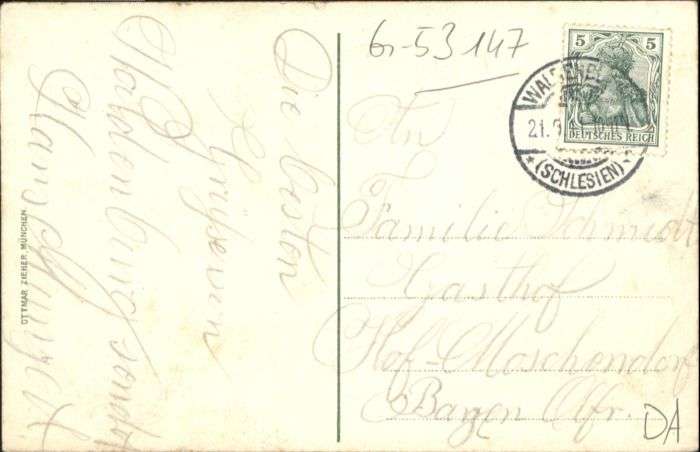 Die besten
Grüße von
Waldenburg sendet
OTTMAR ZIEHER MÜNCHEN
Gr-53 147
5 5
DEUTSCHES REICH
WALDENBURG
21.9.
(SCHLESIEN)
An
Familie Schmidt
Gasthof
Hof-Moschendorf
Bayern Ofr.
DA